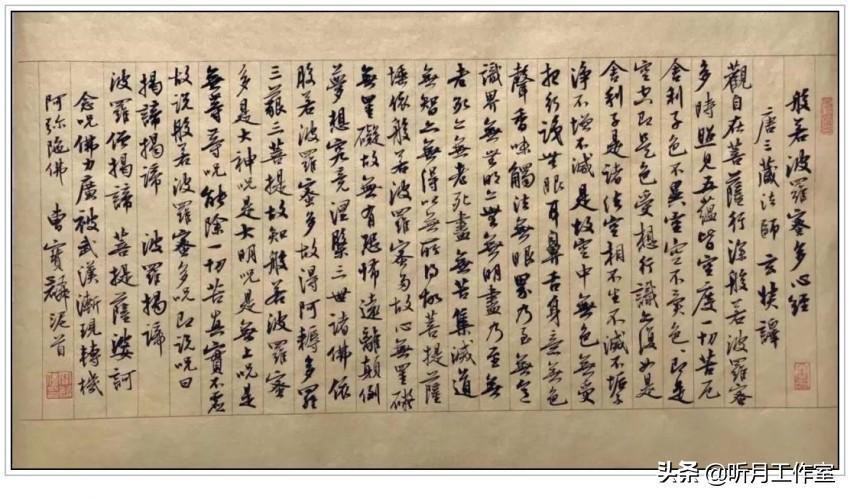 般若波羅蜜多心經
唐三藏法師玄奘譯
觀自在菩薩行深般若波羅蜜
多時照見五蘊皆空度一切苦厄
舍利子色不異空空不異色即是
空空即是色受想行識亦復如是
舍利子是諸法空相不生不滅不垢不
淨不增不減是故空中無色無受
想行識無眼耳鼻舌身意無色
聲香味觸法無眼界乃至無意
識界無無明亦無無明盡乃至無
老死亦無老死盡無苦集滅道
無智亦無得以無所得故菩提薩
埵依般若波羅蜜多故心無罣礙
無罣礙故無有恐怖遠離顛倒
夢想究竟涅槃三世諸佛依
般若波羅蜜多故得阿耨多羅
三藐三菩提故知般若波羅蜜
多是大神呪是大明呪是無上呪是
無等等呪能除一切苦真實不虛
故說般若波羅蜜多呪即說呪曰
揭諦揭諦 波羅揭諦
波羅僧揭諦 菩提薩婆訶
念呪佛力廣被武漢漸現轉機
阿弥陀佛 曹寶麟泥首
头条 @听月工作室